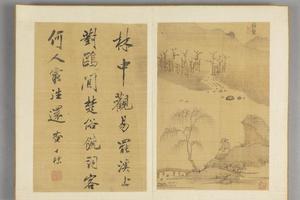 林中觀易罷溪上
對鷗閒楚俗饒詞客
何人最往還 查士標